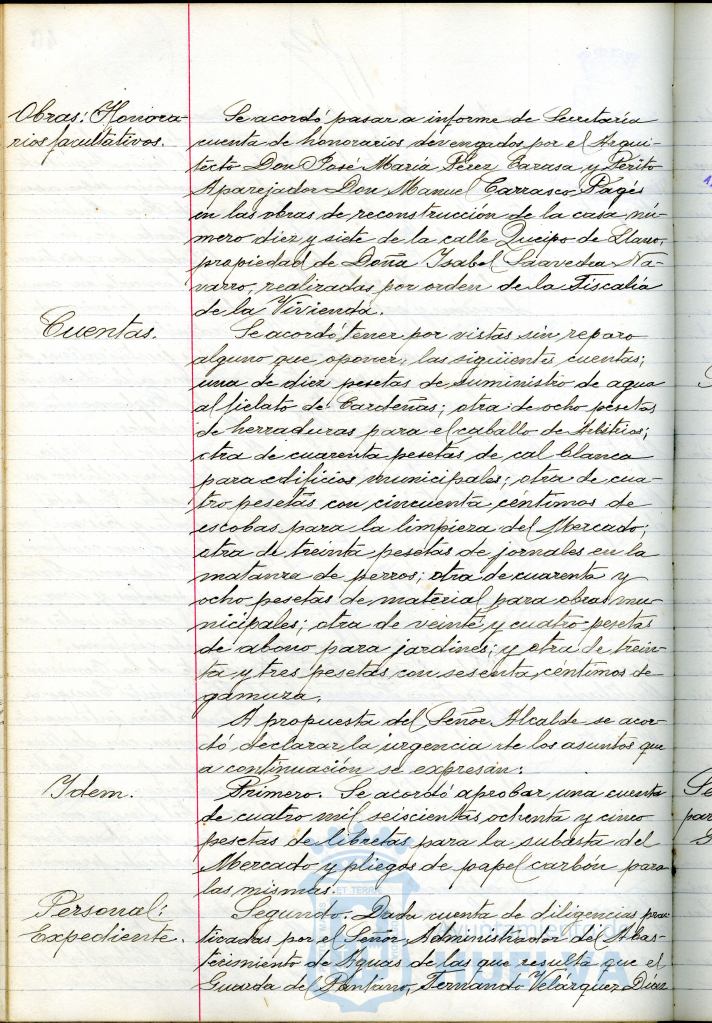 Obras: Honora-
rios facultativos.
Se acordó pasar a informe de Secretaría
cuenta de honorarios devengados por el Arqui-
tecto Don José María Pérez Carasa y Perito
Aparejador Don Manuel Carrasco Pagés
en las obras de reconstrucción de la casa nú-
mero diez y siete de la calle Queipo de Llano,
propiedad de Doña Isabel Saavedra Na-
varro, realizadas por orden de la Fiscalía
de la Vivienda.
Cuentas.
Se acordó tener por vistas sin reparo
alguno que oponer, las siguientes cuentas;
una de diez pesetas de suministro de agua
al fielato de Cardeñas; otra de ocho pesetas
de herraduras para el caballo de Arbitrios;
otra de cuarenta pesetas de cal blanca
para edificios municipales; otra de cua-
tro pesetas con cincuenta céntimos de
escobas para la limpieza del Mercado;
otra de treinta pesetas de jornales en la
matanza de perros; otra de cuarenta y
ocho pesetas de material para obras mu-
nicipales; otra de veinte y cuatro pesetas
de abono para jardines; y otra de trein-
ta y tres pesetas con sesenta céntimos de
gamuza.
A propuesta del Señor Alcalde se acor-
dó declarar la urgencia de los asuntos que
a continuación se expresan:
Idem.
Primero. Se acordó aprobar una cuenta
de cuatro mil seiscientas ochenta y cinco
pesetas de libretas para la subasta del
Mercado y pliegos de papel carbón para
las mismas.
Personal:
Expediente.
Segundo. Dada cuenta de diligencias prac-
ticadas por el Señor Administrador del Abas-
tecimiento de Aguas de las que resulta que el
Guarda del Pantano, Fernando Velázquez Díaz
ET TERRE
Ayuntamiento de
HUELVA